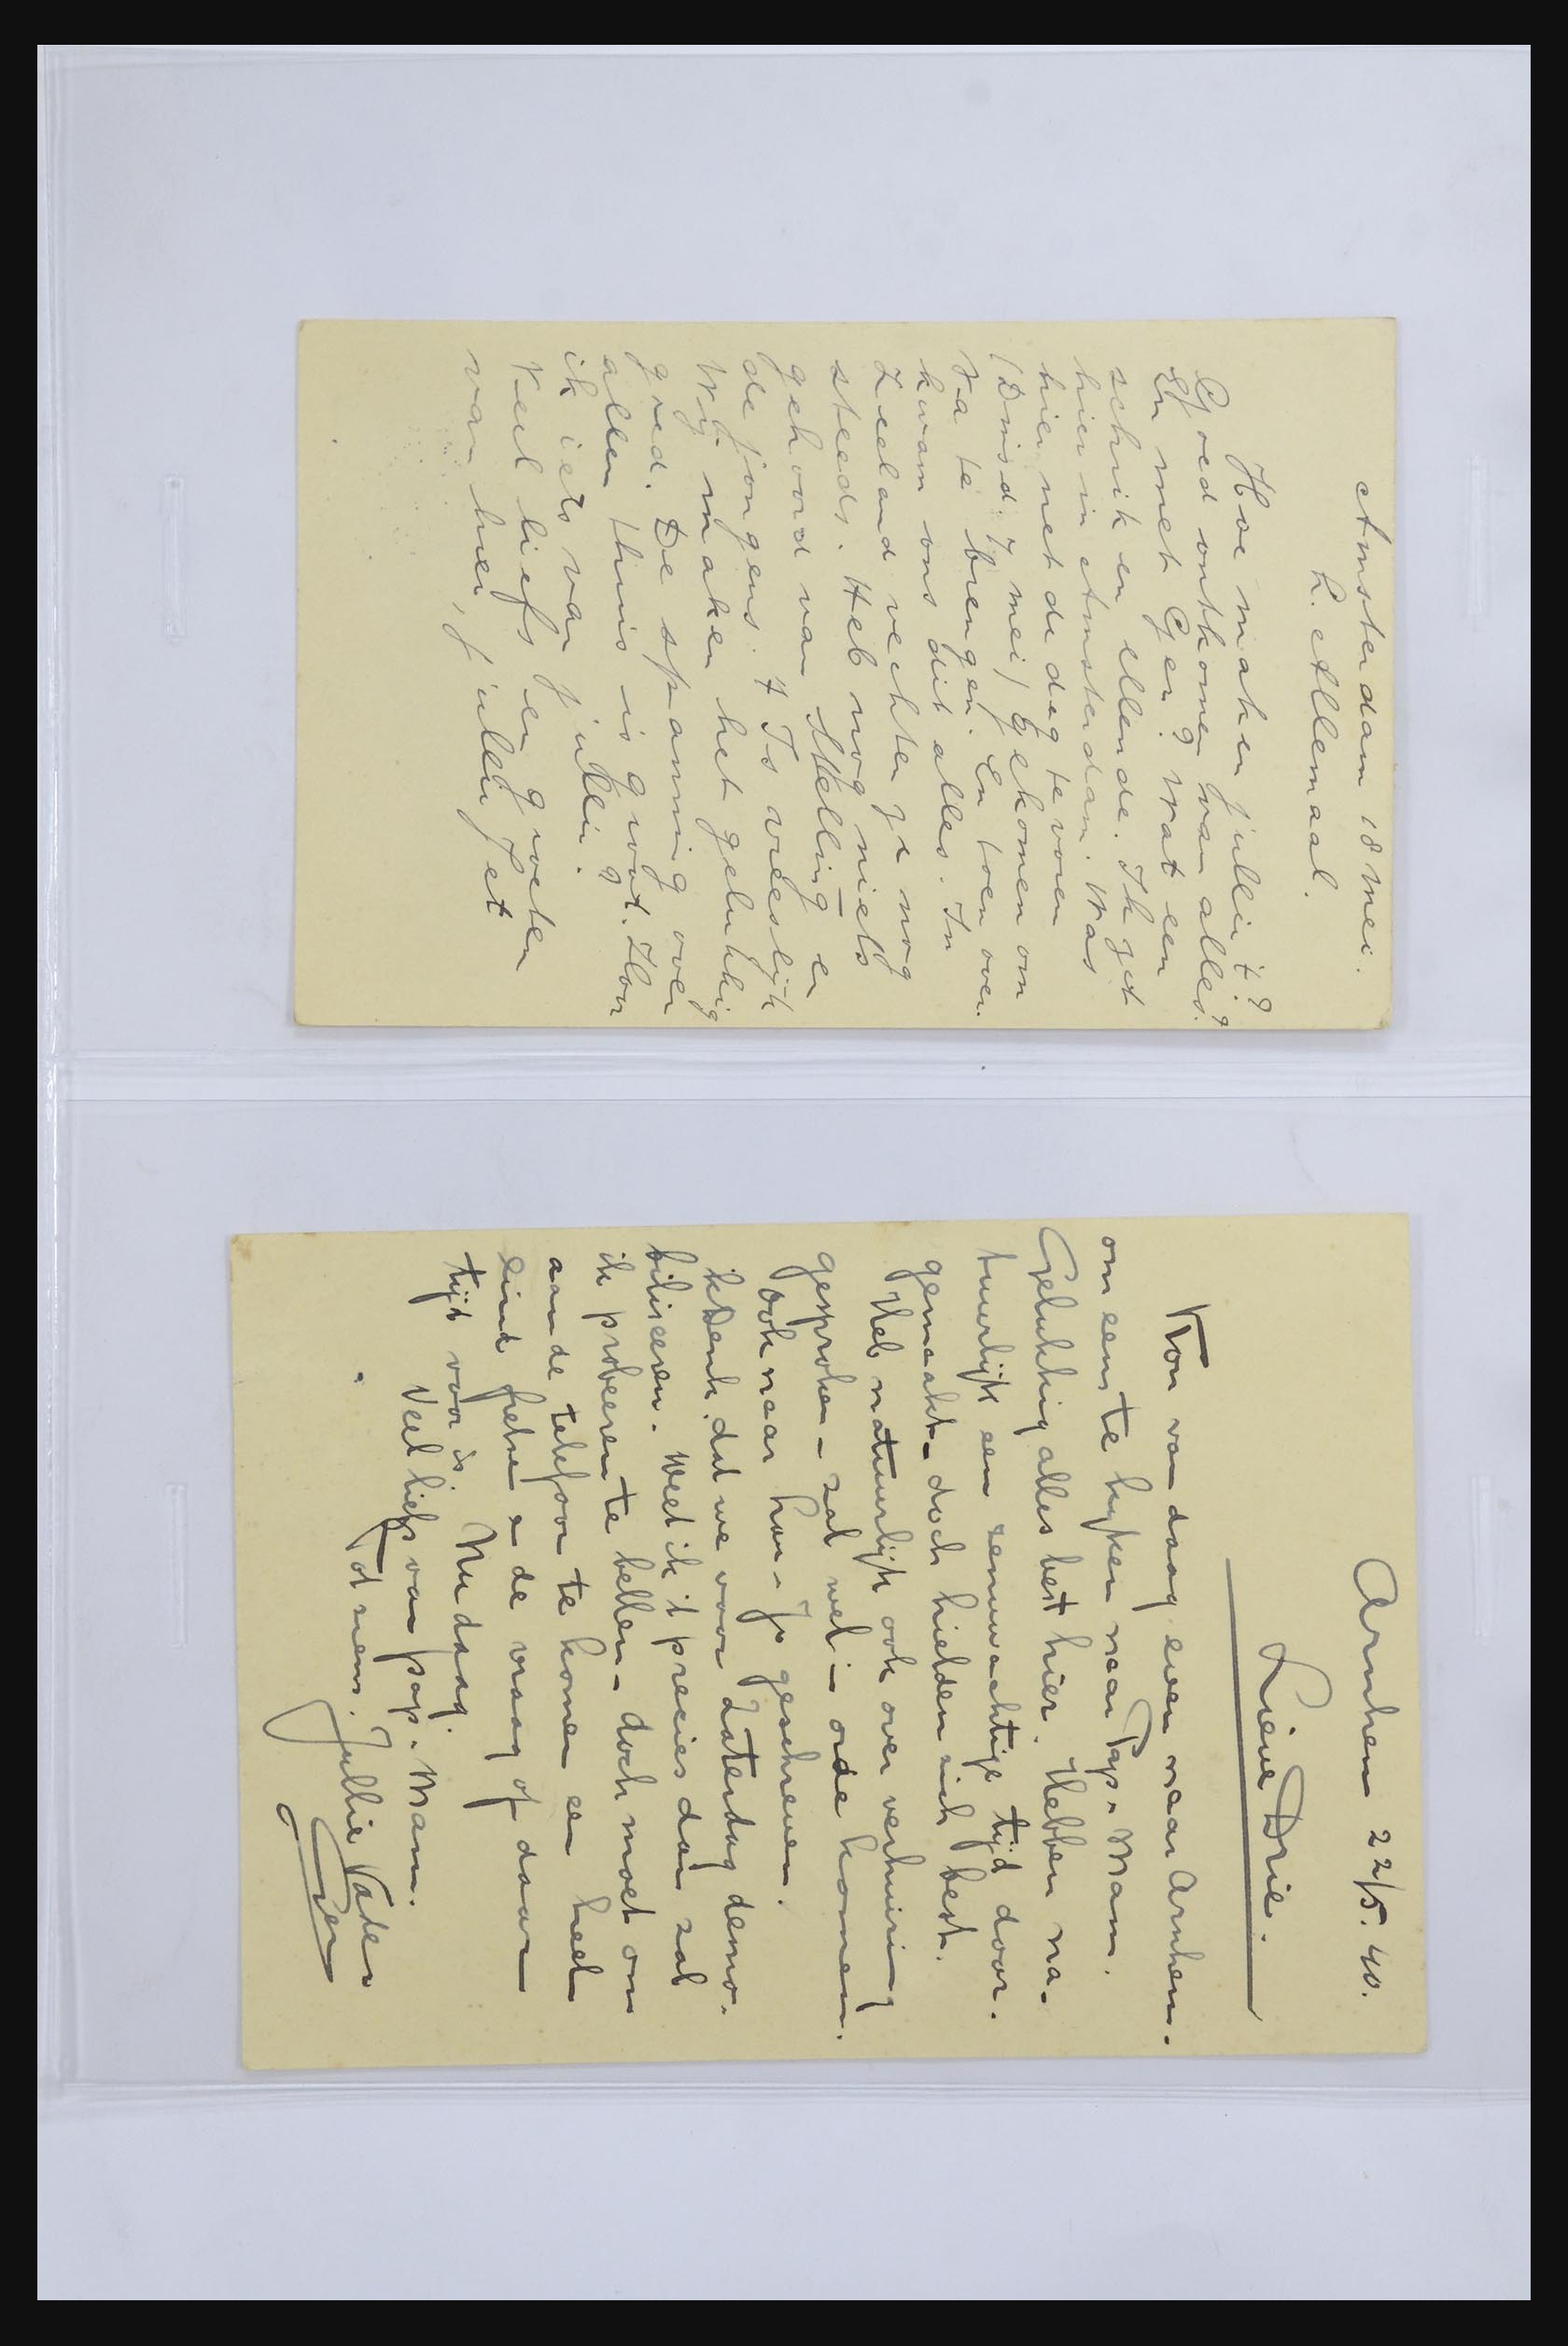 Amsterdam 18 Mei.
L. Allemaal.
Hoe maken jullie 't?
Goed ontkomen van alles?
En met Ger? Wat een
schrik en ellende. Ik zat
hier in Amsterdam. Was
hier net de dag te voren
(Dinsd. 7 mei) gekomen om
Pa te brengen. En toen over-
kwam ons dit alles. In
Zeeland vechten ze nog
steeds. Heb nog niets
gehoord van Stelling en
de jongens. 't Is vreeslijk
Wij maken het gelukkig
goed. De spanning over
allen thuis is groot. Hoor
ik iets van jullie?
Veel liefs en groeten
van hier, jullie Jet
Arnhem 22/5. 40.
Lieve Drie.
Kon van daag even naar Arnhem.
om eens te kijken naar Pap. Mam.
Gelukkig alles best hier. Hebben na-
tuurlijk een zenuwachtige tijd door-
gemaakt - doch hielden zich best.
Heb natuurlijk ook over verhuizing
gesproken - zal wel in orde komen.
Ook naar geschreven.
ik Denk dat we voor Zaterdag demo-
biliseeren. Weet ik 't precies dan zal
ik probeeren te bellen - doch moet om
aan de telefoon te komen een heel
eind fietsen en de vraag of daar
tijd voor is. Nu daag.
Veel liefs van pap. Mam.
Tot ziens. Jullie Vader
Ger